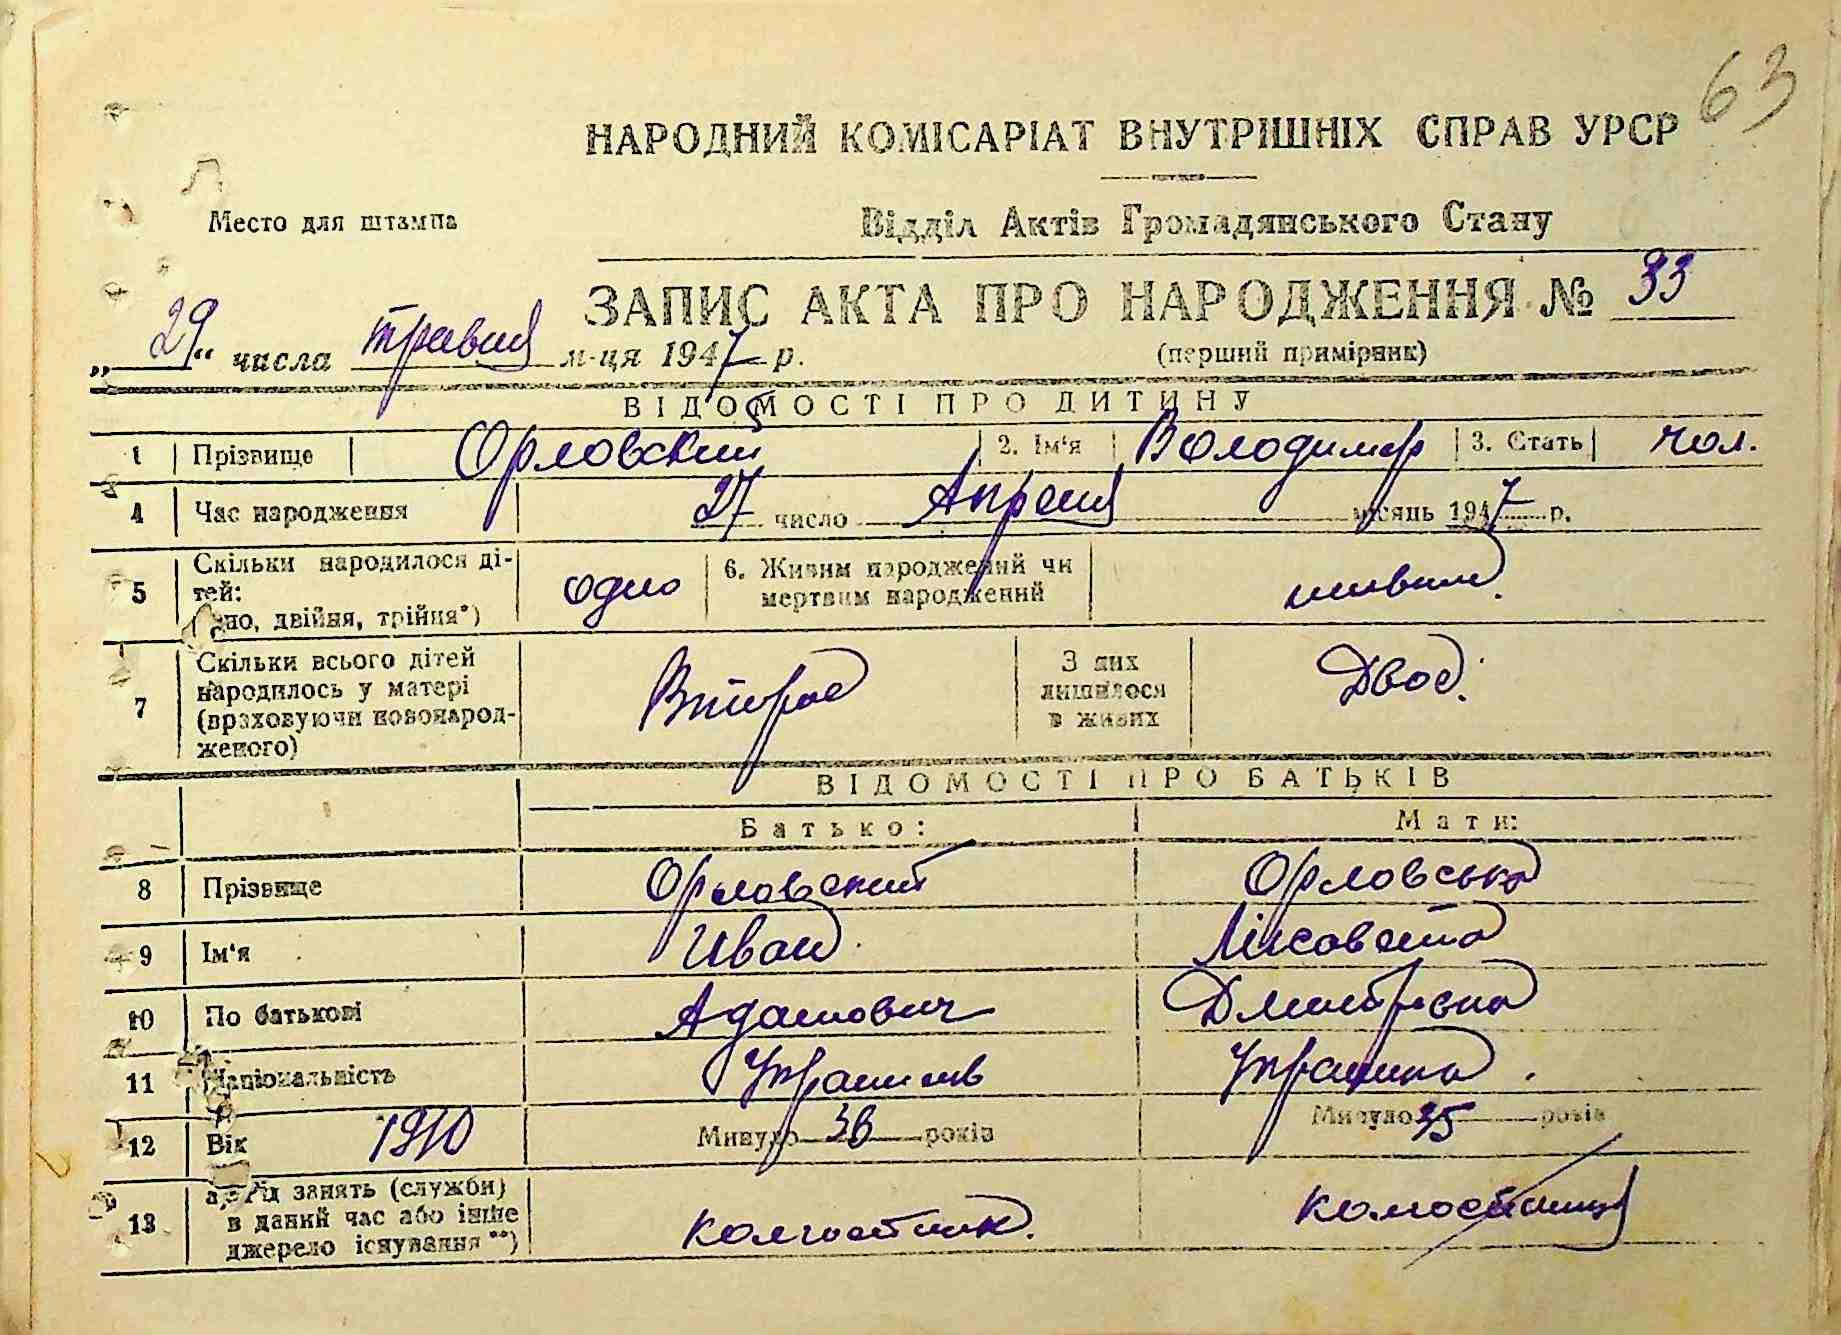 63
НАРОДНИЙ КОМІСАРІАТ ВНУТРІШНІХ СПРАВ УРСР
Место для штампа
Відділ Актів Громадянського Стану
ЗАПИС АКТА ПРО НАРОДЖЕННЯ № 33
„29“ числа травня м-ця 1947 р.
(перший примірник)
ВІДОМОСТІ ПРО ДИТИНУ
1 Прізвище Орловский 2. Ім'я Володимер 3. Стать чол.
4 Час народження 27 число Апреля місяць 1947 р.
5 Скільки народилося ді-
тей:
но, двійня, трійня*)
одно
6. Живим народжений чи
мертвим народжений
живим.
7 Скільки всього дітей
народилось у матері
(враховуючи новонарод-
женого)
Второе
З них
лишилося
в живих
Двоє.
ВІДОМОСТІ ПРО БАТЬКІВ
Батько: Мати:
8 Прізвище Орловский Орловська
9 Ім'я Иван Лісовета
10 По батькові Адамович
11 Національність
12 Вік 1910 Минуло 36 років Минуло 35 років
13 а) Рід занять (служби)
в даний час або інше
джерело існування**)
колгостник. колгостниця